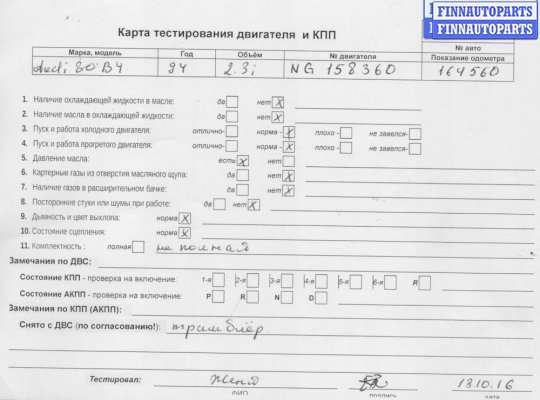 FINNAUTOPARTS
FINNAUTOPARTS
Карта тестирования двигателя и КПП
№ авто
Марка, модель Год Объём № двигателя Показание одометра
Audi 80 B4 94 2.3i NG 158360 164560
1. Наличие охлаждающей жидкости в масле: да нет X
2. Наличие масла в охлаждающей жидкости: да нет X
3. Пуск и работа холодного двигателя: отлично- норма - X плохо - не завелся-
4. Пуск и работа прогретого двигателя: отлично- норма - X плохо - не завелся-
5. Давление масла: есть X нет
6. Картерные газы из отверстия масляного щупа: да нет X
7. Наличие газов в расширительном бачке: да нет X
8. Посторонние стуки или шумы при работе: да нет X
9. Дымность и цвет выхлопа: норма X
10. Состояние сцепления: норма X
11. Комплектность : полная не полная
Замечания по ДВС:
Состояние КПП - проверка на включение: 1-я 2-я 3-я 4-я 5-я 6-я R
Состояние АКПП - проверка на включение: P R N D
Замечания по КПП (АКПП):
Снято с ДВС (по согласованию!): трамблёр
Тестировал: Женя 18.10.16
ФИО подпись дата